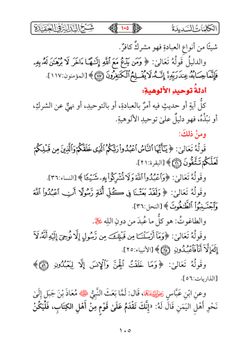 الكلمات السديدة ١٠٥ شرح البداية في العقيدة
شيئًا من أنواع العبادةِ فهو مشركٌ كافرٌ.
والدليلُ قولُهُ تعالى: ﴿ وَمَن يَدْعُ مَعَ ٱللَّهِ إِلَٰهًا ءَاخَرَ لَا بُرْهَٰنَ لَهُۥ بِهِۦ
فَإِنَّمَا حِسَابُهُۥ عِندَ رَبِّهِۦٓ إِنَّهُۥ لَا يُفْلِحُ ٱلْكَٰفِرُونَ ١١٧ ﴾ [المؤمنون:١١٧].
أدلةُ توحيدِ الألوهيةِ:
كلُّ آيةٍ أو حديثٍ فيه أمرٌ بالعبادةِ، أو بالتوحيدِ، أو نهيٌ عن الشركِ،
أو نبذُهُ، فهو دليلٌ على توحيدِ الألوهيةِ.
ومنْ ذلكَ:
قولُهُ تعالى: ﴿ يَٰٓأَيُّهَا ٱلنَّاسُ ٱعْبُدُوا۟ رَبَّكُمُ ٱلَّذِى خَلَقَكُمْ وَٱلَّذِينَ مِن قَبْلِكُمْ
لَعَلَّكُمْ تَتَّقُونَ ٢١ ﴾ [البقرة:٢١].
وقولُهُ تعالى: ﴿ وَٱعْبُدُوا۟ ٱللَّهَ وَلَا تُشْرِكُوا۟ بِهِۦ شَيْـًٔا ﴾ [النساء:٣٦].
وقولُهُ تعالى: ﴿ وَلَقَدْ بَعَثْنَا فِى كُلِّ أُمَّةٍ رَّسُولًا أَنِ ٱعْبُدُوا۟ ٱللَّهَ
وَٱجْتَنِبُوا۟ ٱلطَّٰغُوتَ ﴾ [النحل:٣٦].
والطاغوتُ: هو كلُّ ما عُبِدَ من دونِ اللهِ
وقولُهُ تعالى: ﴿ وَمَآ أَرْسَلْنَا مِن قَبْلِكَ مِن رَّسُولٍ إِلَّا نُوحِىٓ إِلَيْهِ أَنَّهُۥ لَآ
إِلَٰهَ إِلَّآ أَنَا۠ فَٱعْبُدُونِ ٢٥ ﴾ [الأنبياء:٢٥].
وقولُهُ تعالى: ﴿ وَمَا خَلَقْتُ ٱلْجِنَّ وَٱلْإِنسَ إِلَّا لِيَعْبُدُونِ ٥٦ ﴾
[الذاريات:٥٦].
وعنِ ابنِ عباسٍ، قالَ: لمَّا بعثَ النبيُّ ﷺ معاذَ بنَ جبلٍ إلى
نحوِ أهلِ اليمنِ قالَ لهُ: «إنَّكَ تَقْدَمُ عَلَى قَوْمٍ مِنْ أَهْلِ الكِتَابِ، فَلْيَكُنْ
١٠٥